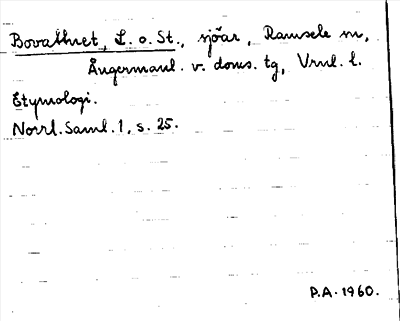 Bovattnet, L. o. St., sjöar, Ramsele sn,
Ångermanl. v. doms. tg, Vrnl. l.
Etymologi.
Norrl. Saml. 1, s. 25.
P.A. 1960.